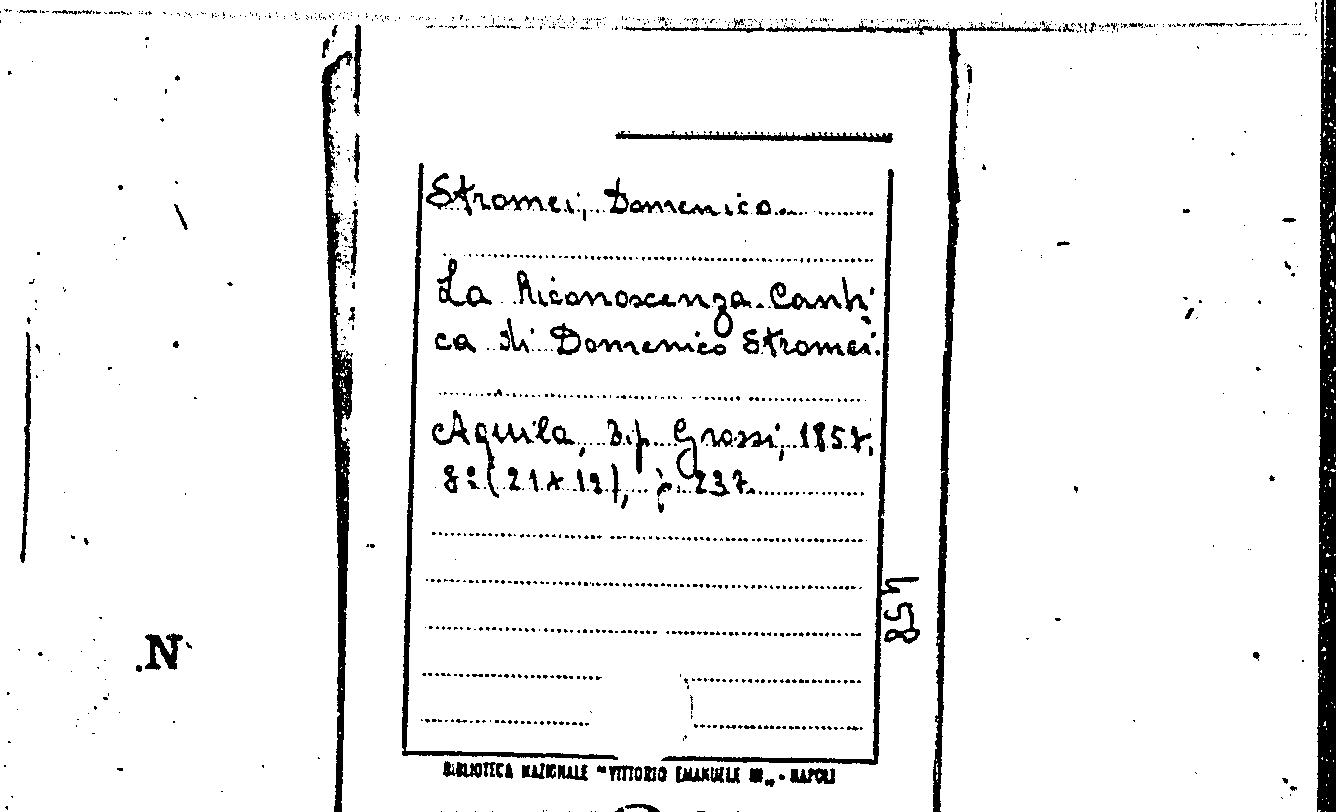 Stromei, Domenico.
La Riconoscenza. Canti
ca di Domenico Stromei.
Aquila, Tip. Grossi, 1857.
8º (21 x 12), p. 237.
458
.N
BIBLIOTECA NAZIONALE "VITTORIO EMANUELE III„ - NAPOLI